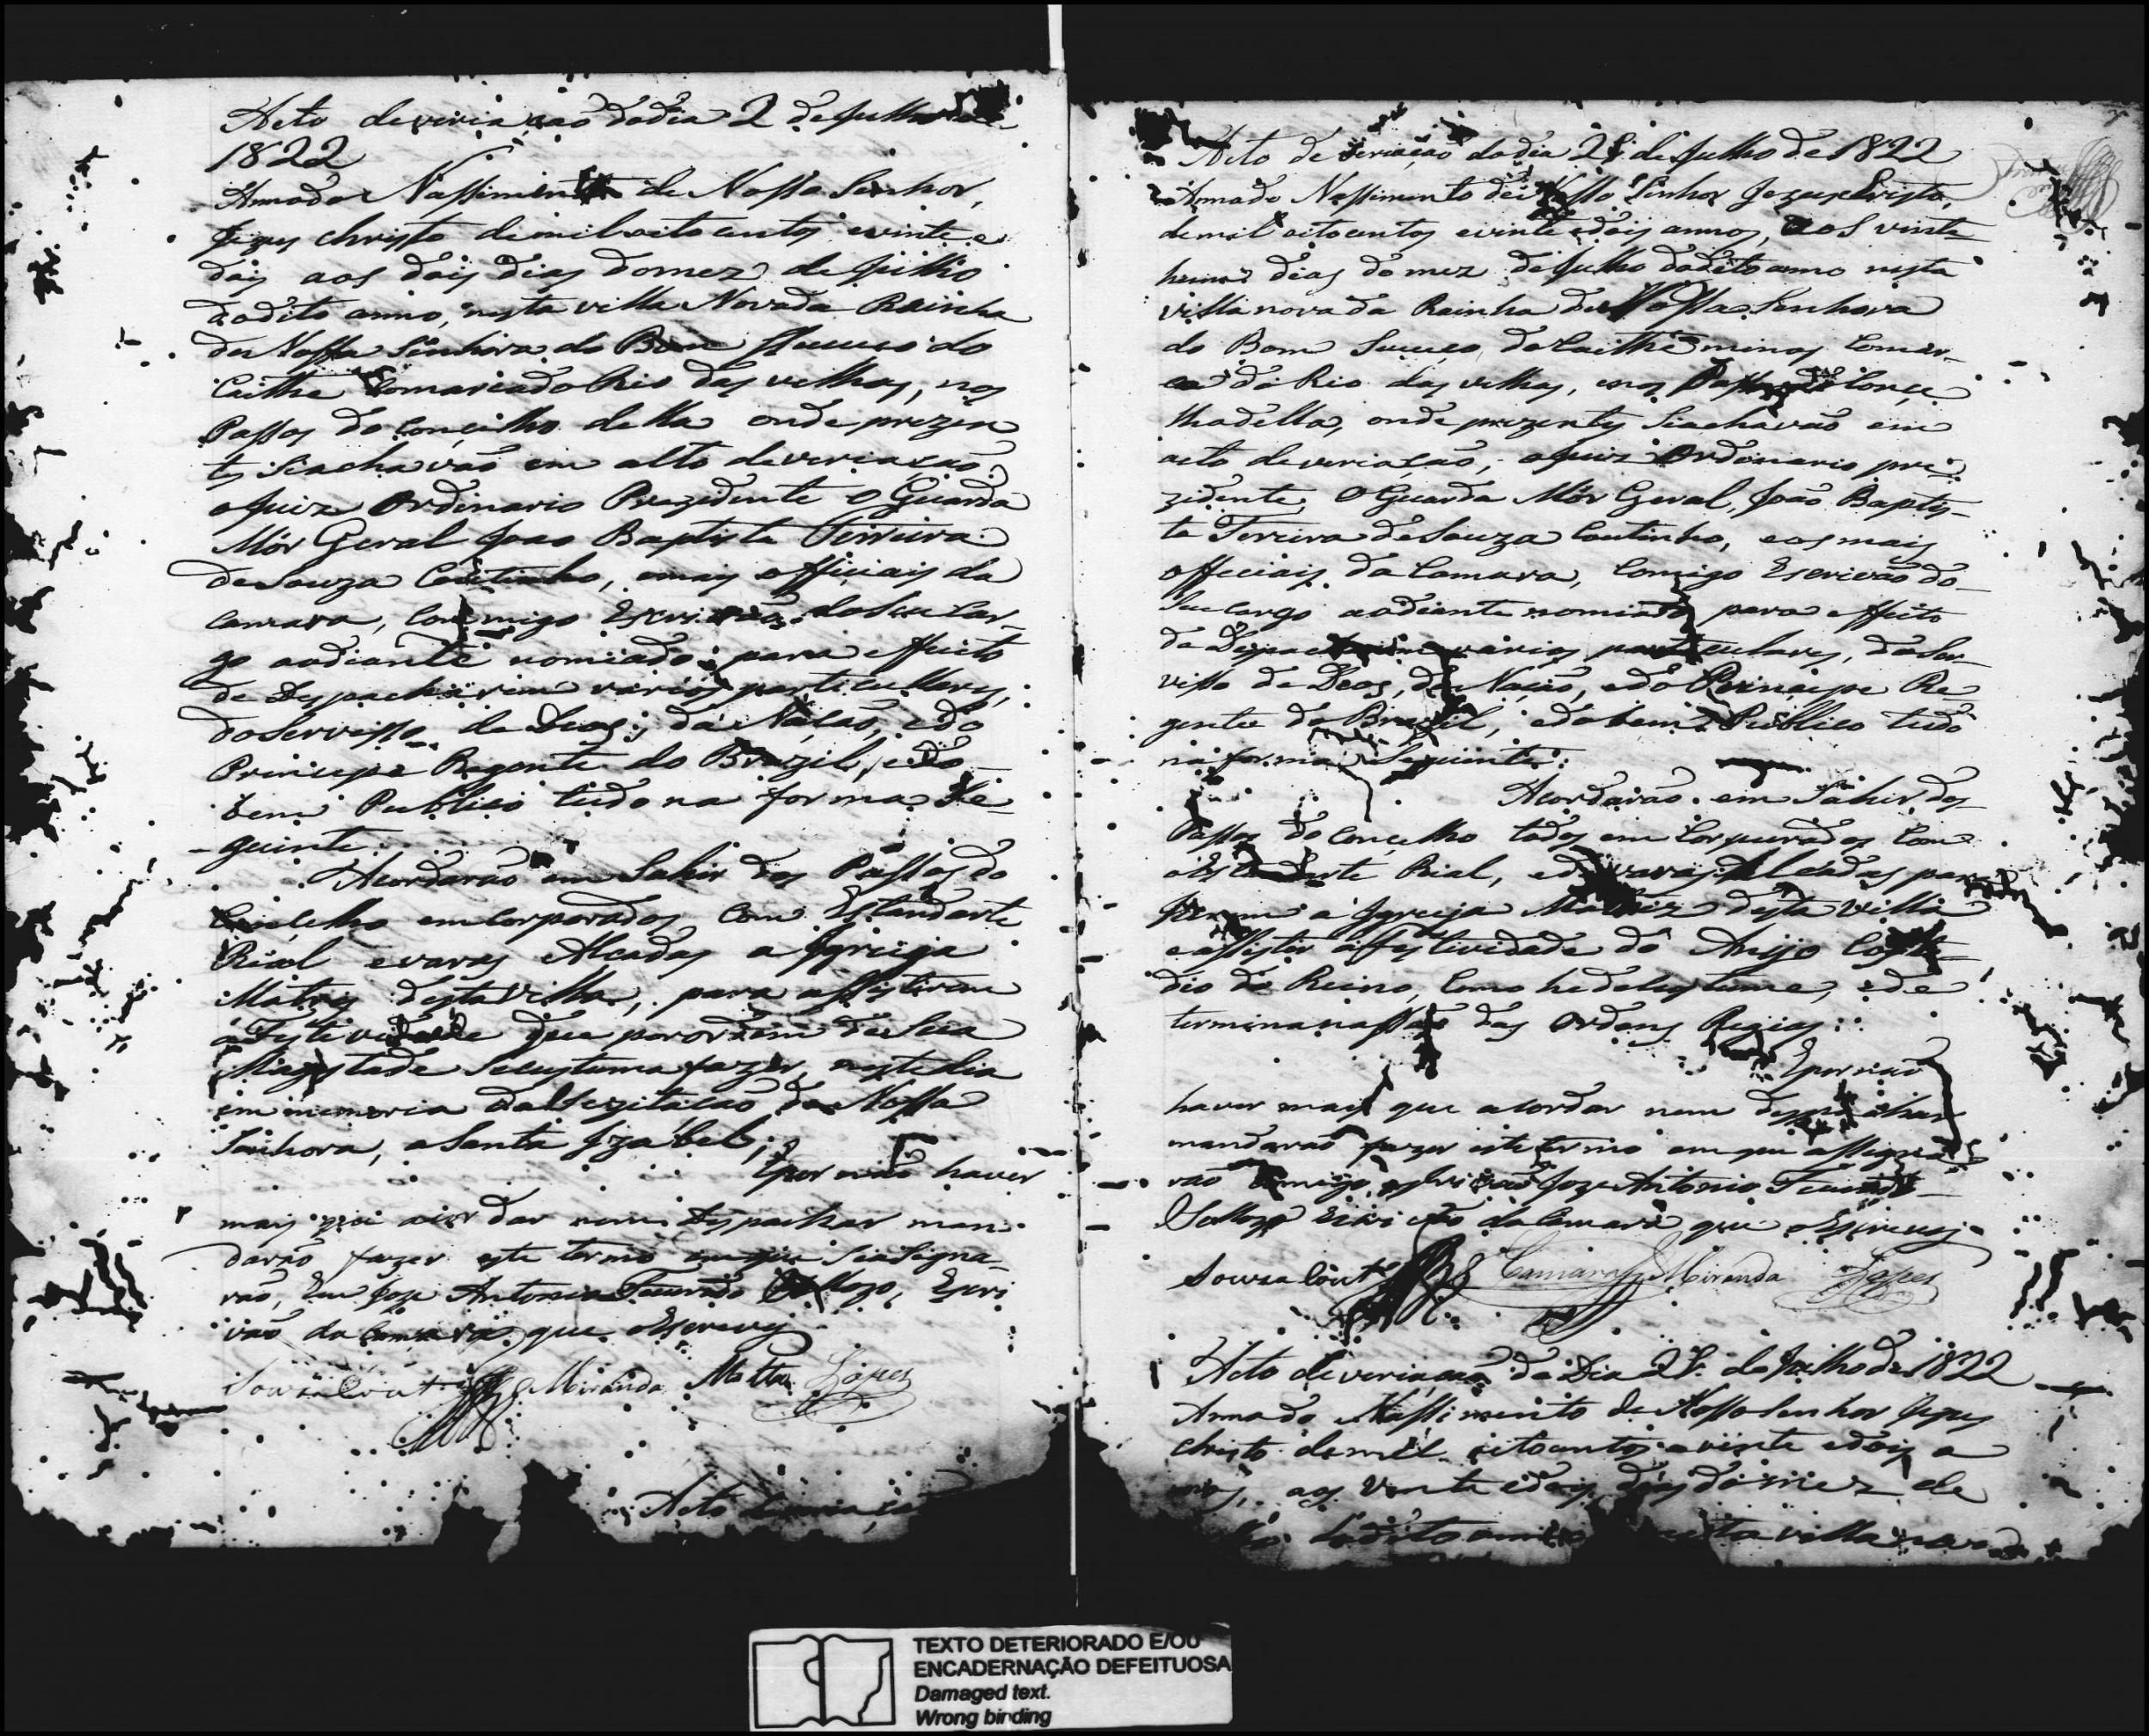 Acto de veriação do dia 2 de Julho de
1822
Anno do Nassimento de Nosso Senhor,
Jezus Christo de mil oito centos evinte e
dois aos dois dias do mez de Julho
do dito anno, nesta villa Nova da Rainha
de Nossa Senhora do Bom Ssucuco do
Caithe Comarca do Rio das velhas, nos
Passos do Concilho della onde prezen
tes Seachavão em alto de veriacão
o Juiz Ordinario Prezidente o Guarda
Mór Geral Joao Baptista Ferreira
de Souza Coutinho, emais officiais da
Camara, Commigo Escrivão do Seu Car-
go aodiante nomiado para effeito
de Despacharem varios particullares,
do Servisso de Deos, da Nacão, edo
Principe Regente do Brazil, edo
bem Publico tudo na forma Se-
guinte.
Acordarão em Sahir dos Passos do
Concelho emCorporados Com Estandarte
Rial evaras Alcadas a Igreija
Matris desta Villa, para assistirem
a Festividade que por ordem de Sua
Magestade Secustuma fazer neste dia
em memoria da Vezitacão de Nossa
Senhora, a Santa Izabel;
Epor não haver
mais que acordar nem Despachar man-
darão fazer este termo emque Seasigna-
rão, Eu Joze Antonio Tecurado Vellozo, Escri
vão da Camara que o Escrevy
Souza Cout.º Miranda Motta Lopes
Acto
Acto de veriação do dia 21 de Julho de 1822
Anno do Nassimento de Nosso Senhor Jezus Cristo,
demil oitocentos evinte edois annos, aos vinte
hum dias do mez de Julho dodito anno nesta
villa nova da Rainha de Nossa Senhora
do Bom Sucuço do Caithé minas Comar-
ca do Rio das velhas, enos Passos do Conce
lho della, onde prezentes Seachavão em
acto de veriacão, o Juiz Ordonario pre
zidente, O Guarda Mór Geral, João Baptis-
ta Ferreira de Souza Coutinho, e os mais
officiais da Camara, Comigo Escrivão do
Seu cargo aodiante nomiado para effeito
de Despacharem varios particulares, do Ser-
visso de Deos, da Nacão, edo Principe Re
gente do Brazil, edo bem Publico tudo
na forma Seguinte:
Acordarão em Sahir dos
Passos do Concelho todos em Corpurados Com
o Estandarte Rial, ede varas Alcadas para
hirem a Igreija Matriz desta Villa
e assistir a festividade do Anijo Custo
dio do Reino, Como he de Custume, e de
terminanassão das Ordens Regias:
Epor não
haver mais que acordar nem despachar
mandarão fazer este termo em que assigna
rão Comigo, Escrivão Joze Antonio Tecurado
Vellozo Escrivão da Camara que o Escrevy
Souza Cout.º Camara Miranda Lopes
Acto de veriação do Dia 22 de Julho de 1822
Anno do Nassimento de Nosso Senhor Jezus
Christo de mil oitocentos e vinte edois a
nnos, aos Vinte edois dias do mez de
dodito anno nesta villa nova